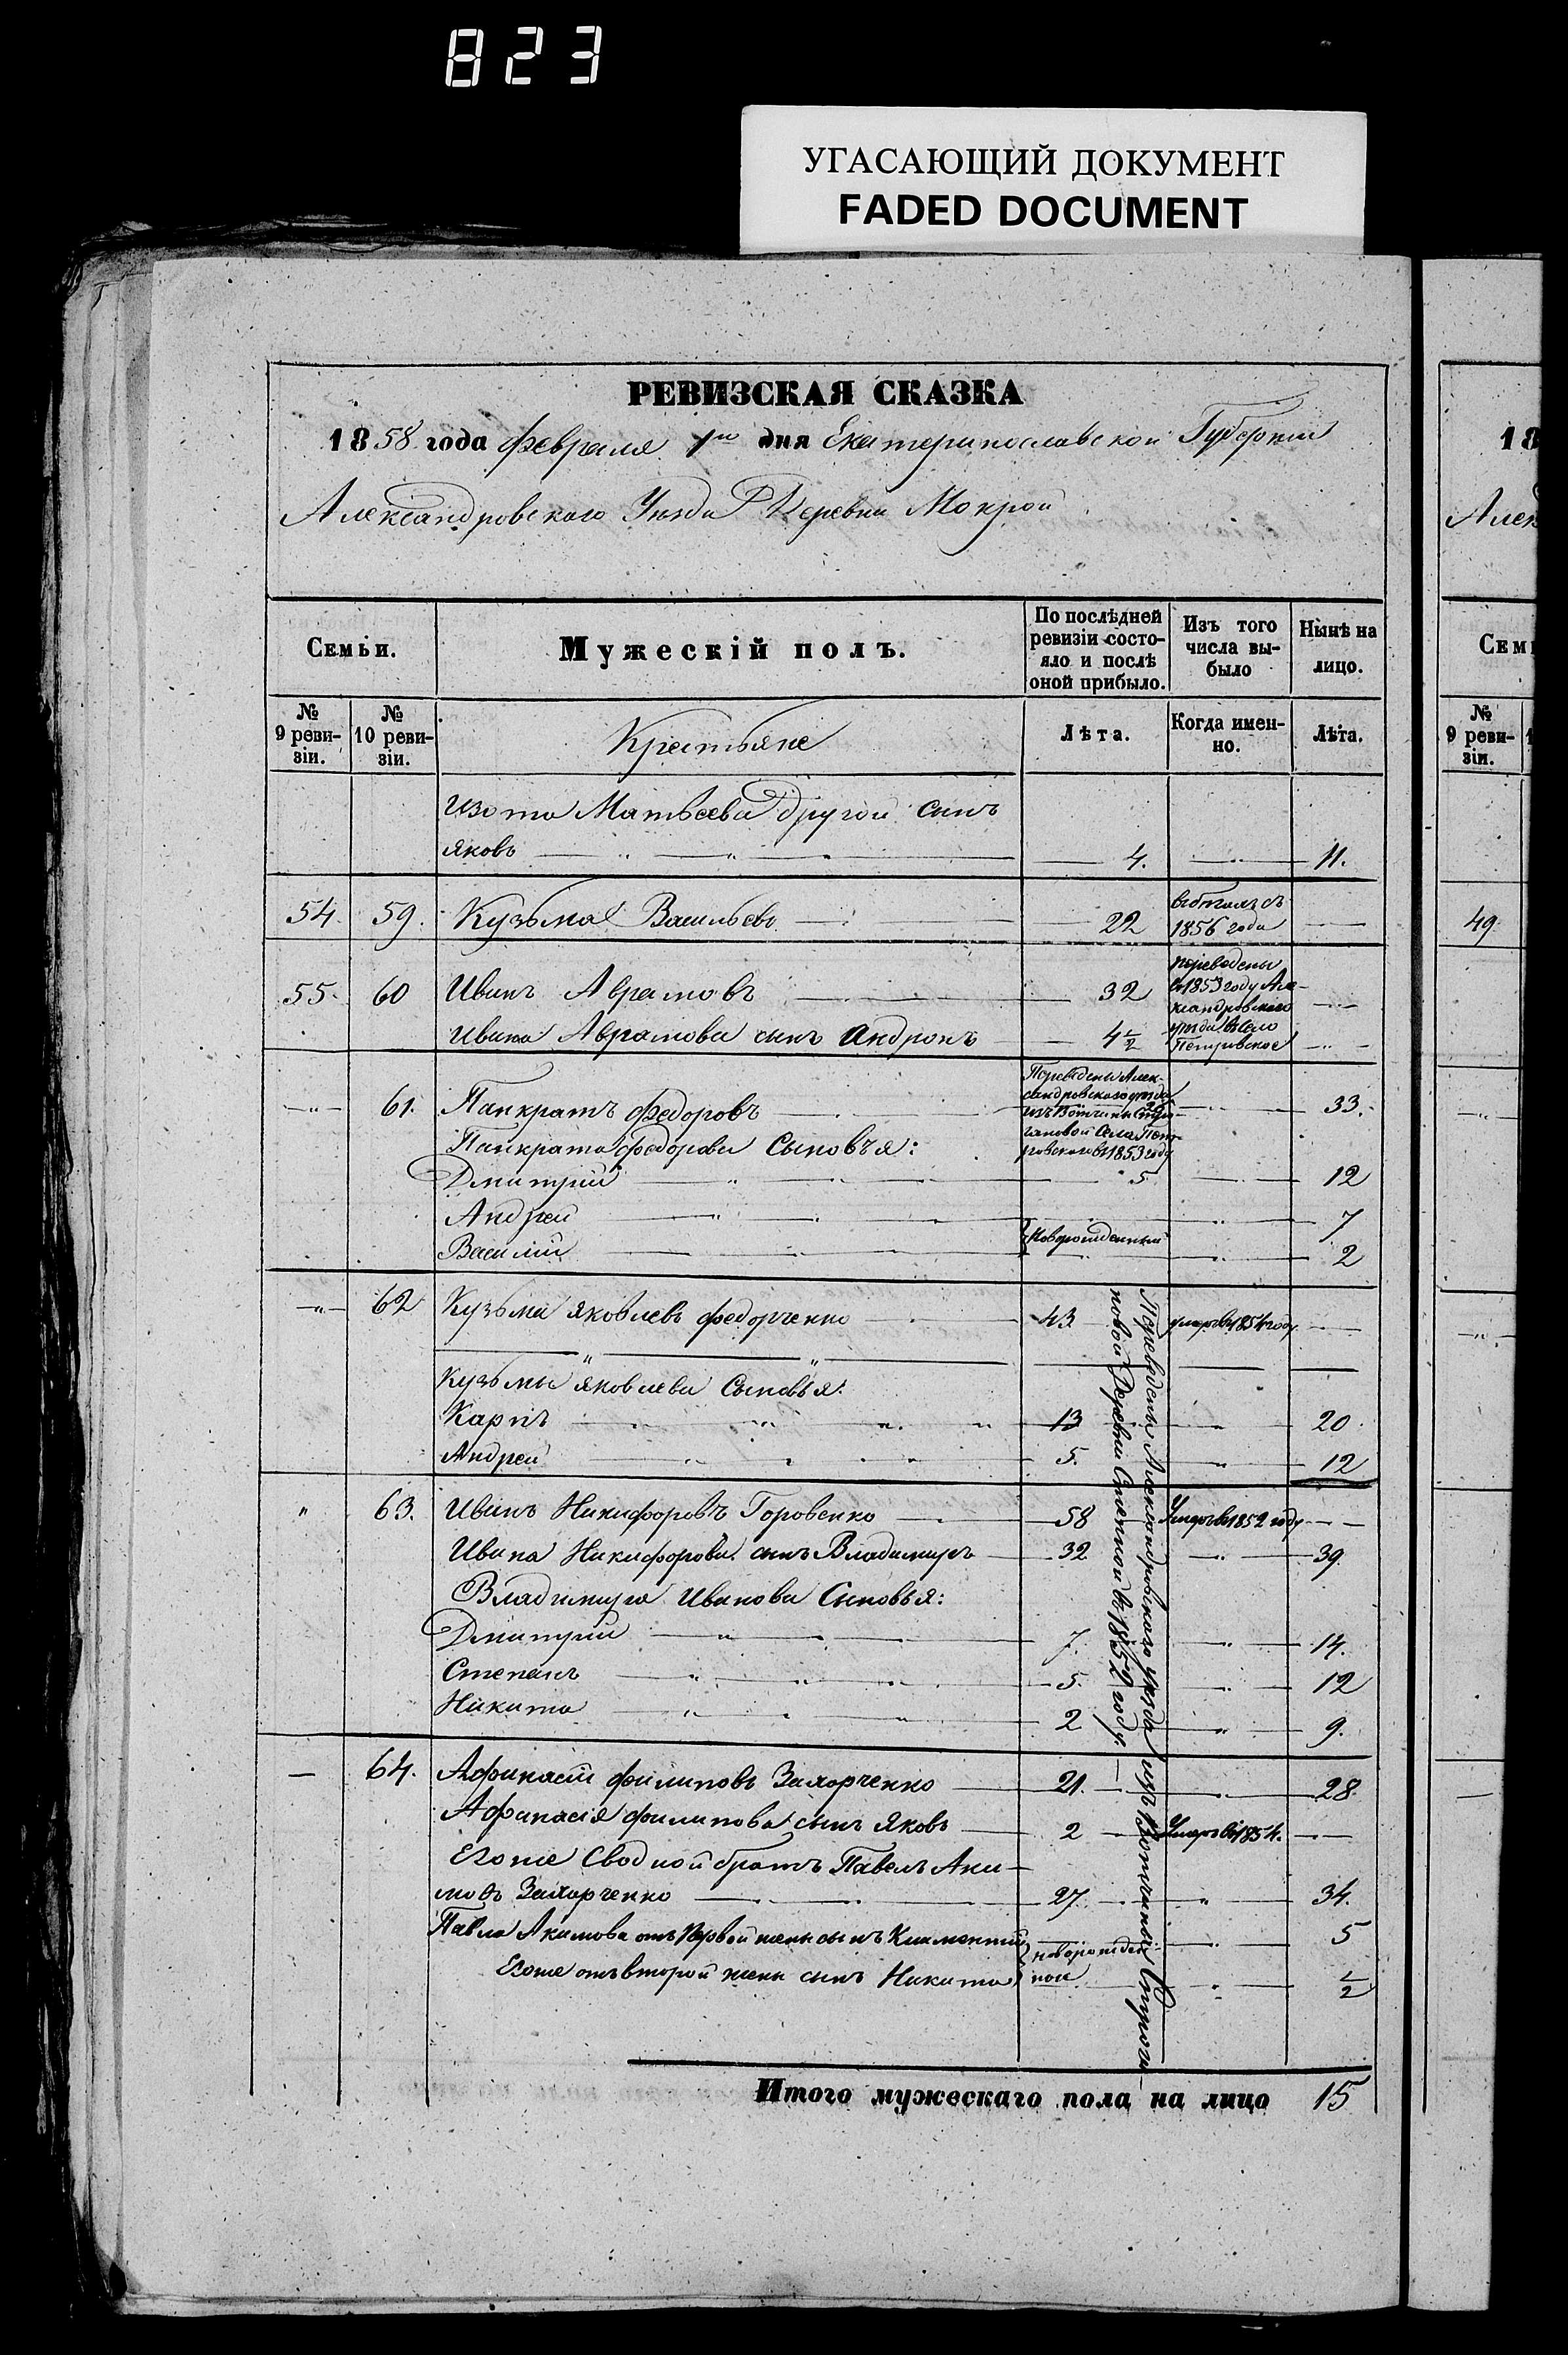 823
УГАСАЮЩИЙ ДОКУМЕНТ
FADED DOCUMENT
РЕВИЗСКАЯ СКАЗКА
1858 года Февраля 1го дня Екатеринославской Губернии
Александровского Уезда Деревни Мокрой
Семьи.
Мужескій полъ.
По послѣдней ревизіи состо-
яло и послѣ
оной прибыло.
Изъ того
числа вы-
было
Нынѣ на
лицо.
№
9 реви-
зіи.
№
10 реви-
зіи.
Крестьяне
Лѣта.
Когда имен-
но.
Лѣта.
Изота Матвеева другой сынъ
Яковъ 4. 11.
54. 59. Кузьма Васильевъ 22
1856 года
55. 60 Иванъ Аврамовъ 32
переведены
в 1853 году Але-
ксандровского
уезда в село
Петровское
Ивана Аврамова сынъ Андронъ 4 1/2
61. Панкратъ Федоровъ 33.
Переведены Алек-
сандровского уезда
изъ Вотчины Стро-
гановой Села Пет-
ровского в 1853 году
Панкрата Федорова Сыновья:
Дмитрий 5 12
Андрей 7
Василий 2
Новорожденные
62 Кузьма Яковлевъ Федорченко 43 умеръ в 1854 году
Кузьмы Яковлева Сыновья:
Карпъ 13 20
Андрей 5. 12
63. Иванъ Никифоровъ Горовенко 58 Умеръ в 1852 году
Ивана Никифорова сынъ Владимиръ 32 39
Владимира Иванова Сыновья:
Дмитрий 7. 14.
Степанъ 5. 12
Никита 2 9.
64. Афанасий Филиповъ Захорченко 21. 28
Афанасія Филипова сынъ Яковъ 2 Умеръ в 1854.
Егоже Сводной братъ Павелъ Аки-
мовъ Захорченко 27 34.
Павла Акимова отъ Первой жены сынъ Климентий 5
Егоже отъ второй жены сынъ Никита 1/2
новорожден-
ной
Переведены Александровского уезда изъ Вотчины Строга-
новой Деревни Степной в 1852 году.
Итого мужескаго пола на лицо 15
18
Алек
Семь
№
9 реви-
зіи.
49